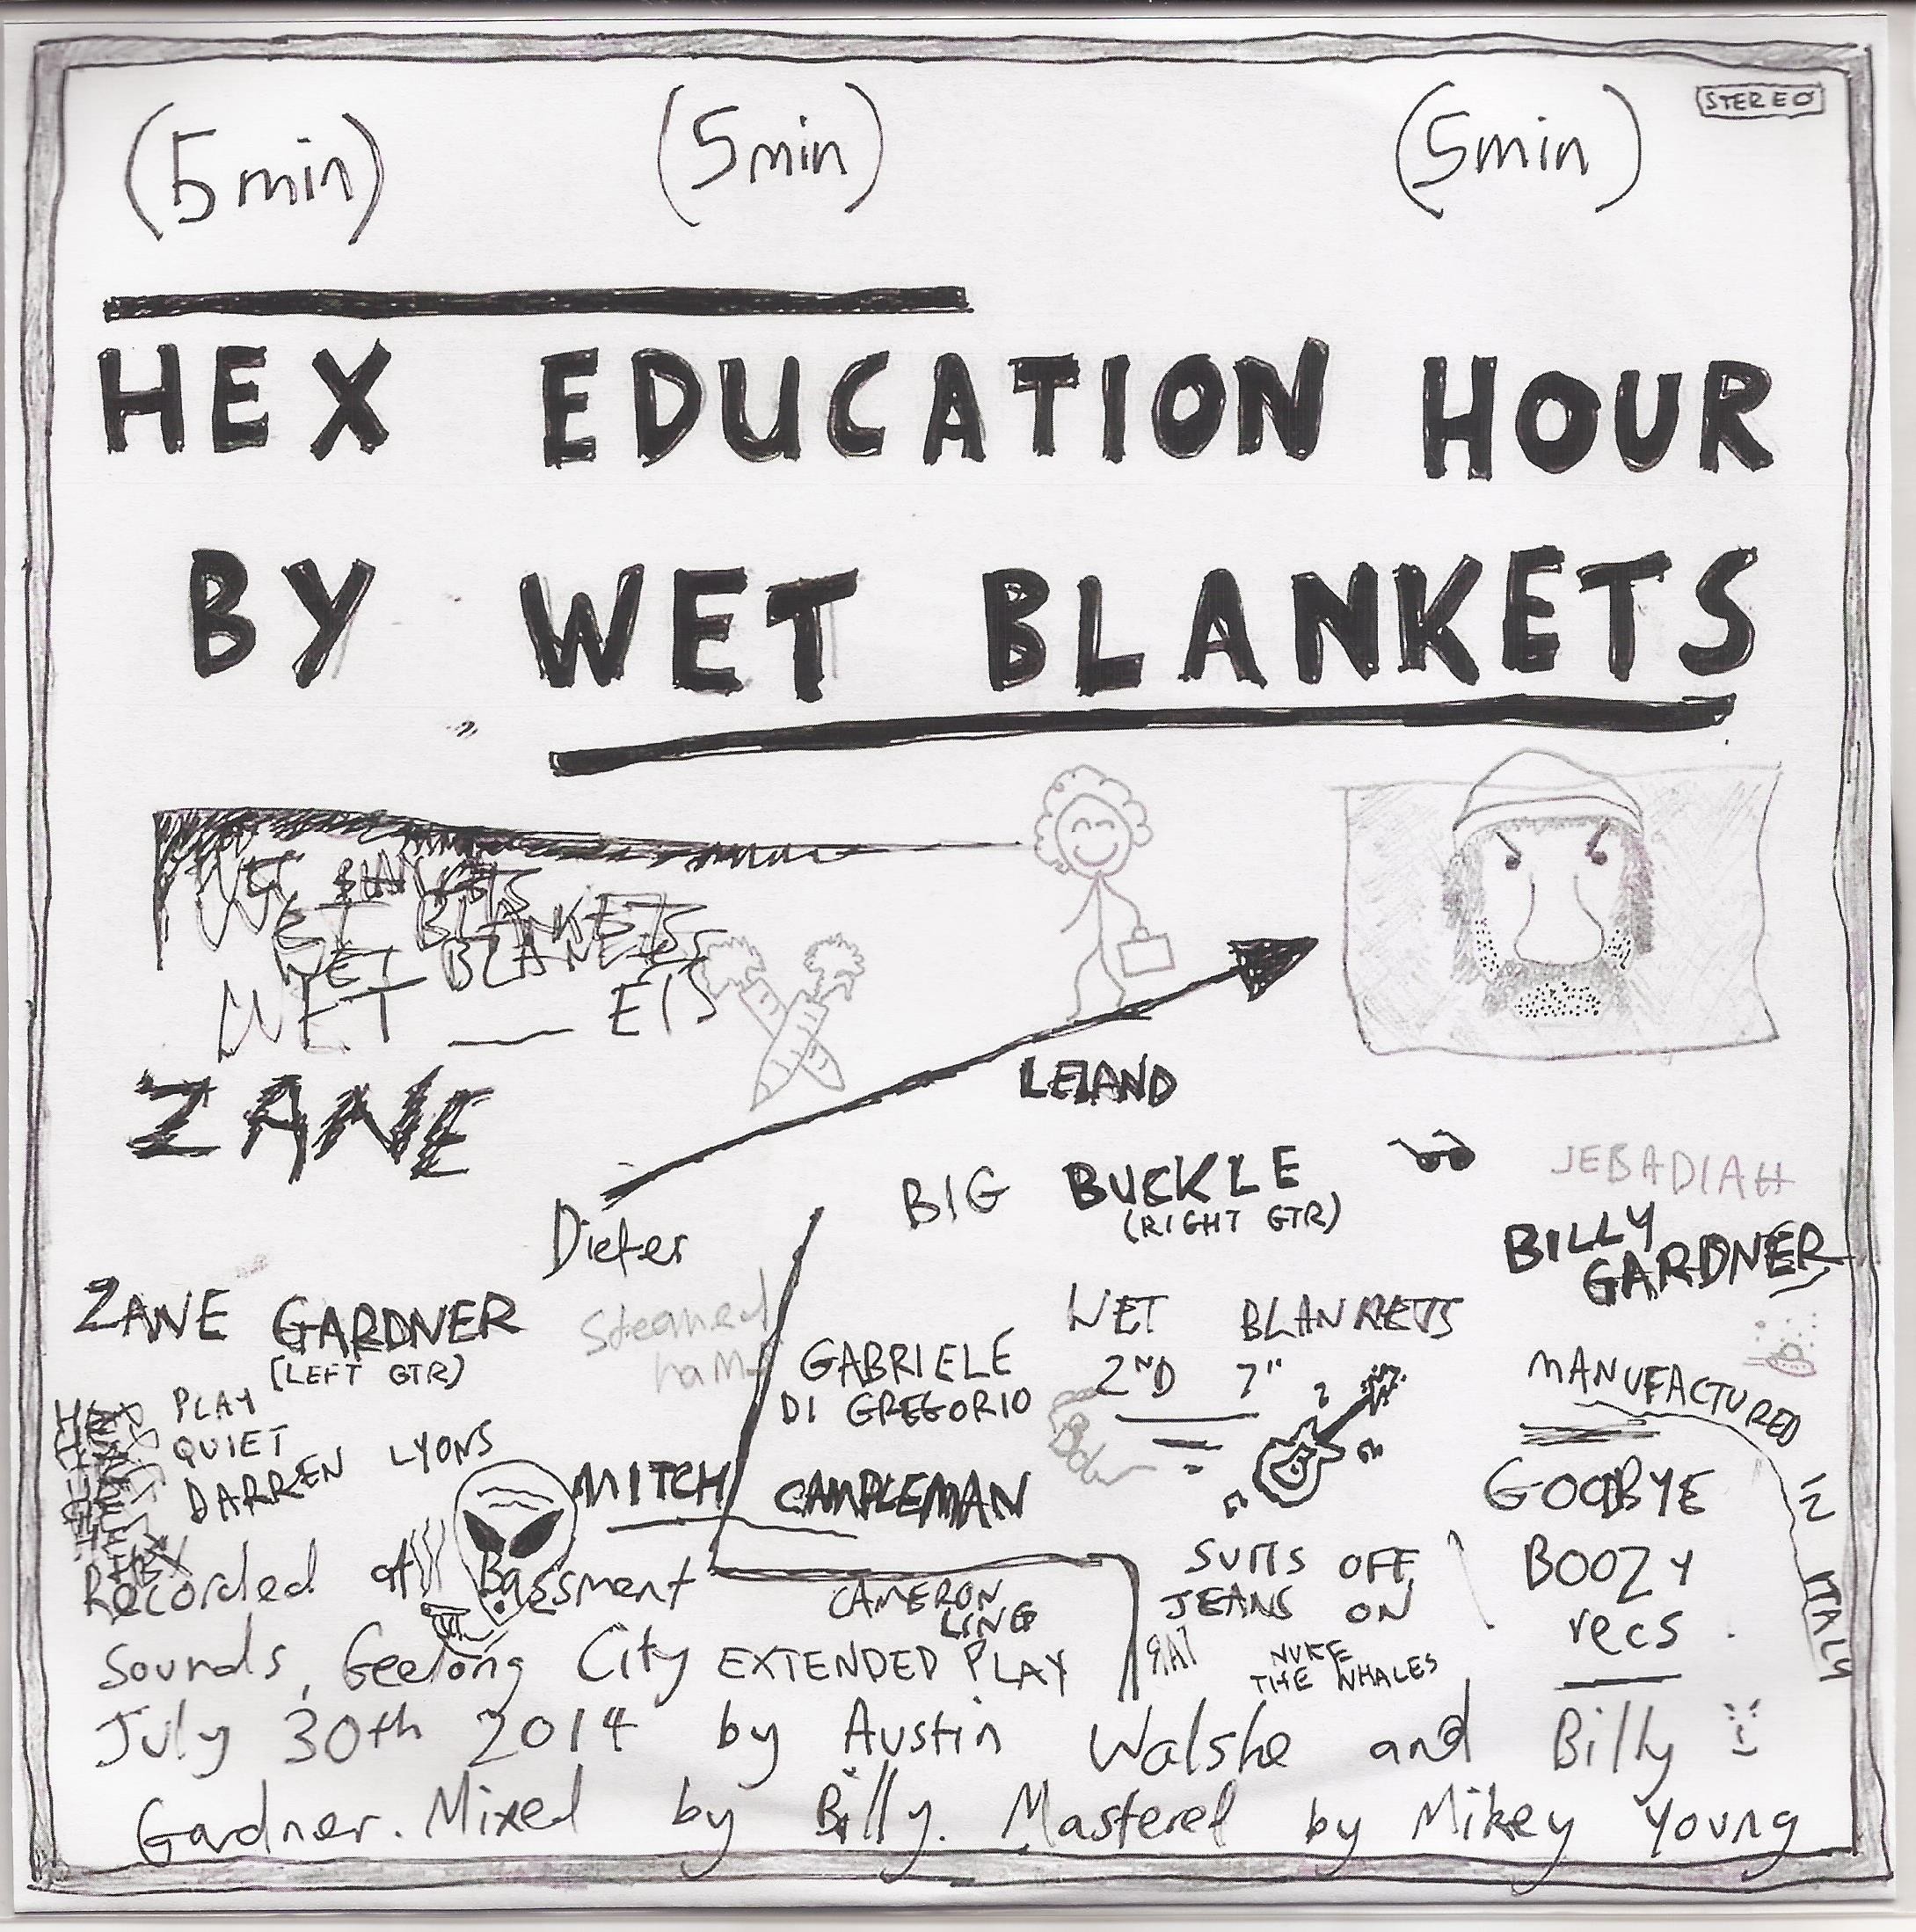 STEREO
(5min) (5min) (5min)
HEX EDUCATION HOUR
BY WET BLANKETS
WET BLANKETS
WET BLANKETS
WET BLANKETS
WET ___ ETS
ZANE
LELAND
Dieter
BIG BUCKLE
(RIGHT GTR)
JEBADIAH
BILLY
GARDNER
ZANE GARDNER
(LEFT GTR)
Steamed
hams
GABRIELE
DI GREGORIO
WET BLANKETS
2ND 7"
MANUFACTURED
IN ITALY
HEX
HEX
HEX
HEX
HEX
HEX
PLAY
QUIET
DARREN LYONS
MITCH CAMPLEMAN
GOODBYE
BOOZY
recs
SUITS OFF
JEANS ON
CAMERON
LING
NUKE
THE WHALES
Recorded at Bassment
Sounds, Geelong City EXTENDED PLAY
July 30th 2014 by Austin Walshe and Billy
Gardner. Mixed by Billy. Mastered by Mikey Young